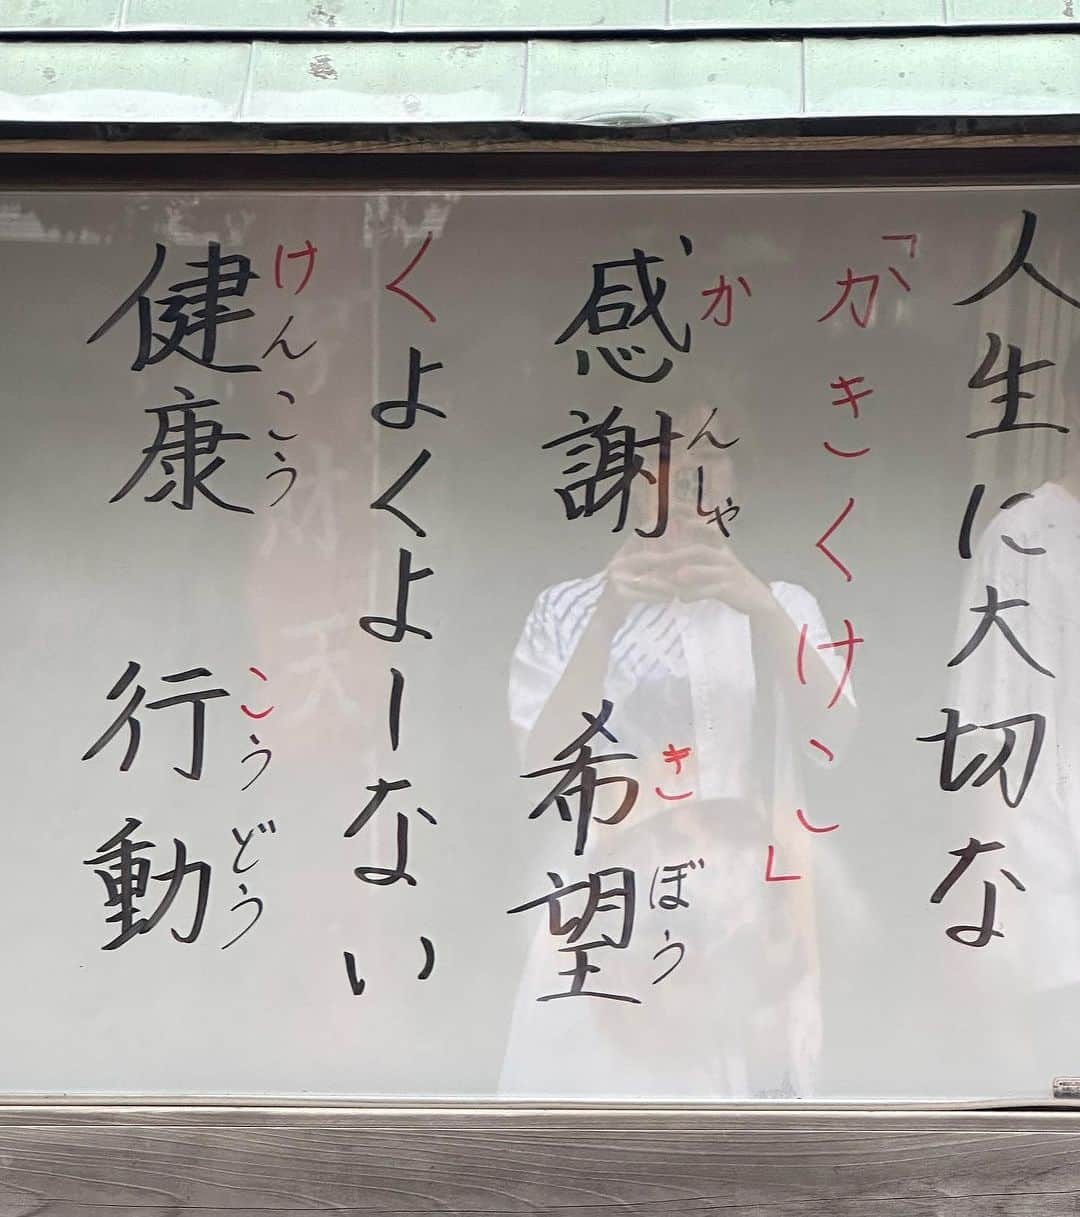 人生に大切な
「かきくけこ」
感謝 希望
かんしゃ きぼう
くよくよーない
健康 行動
けんこう こうどう